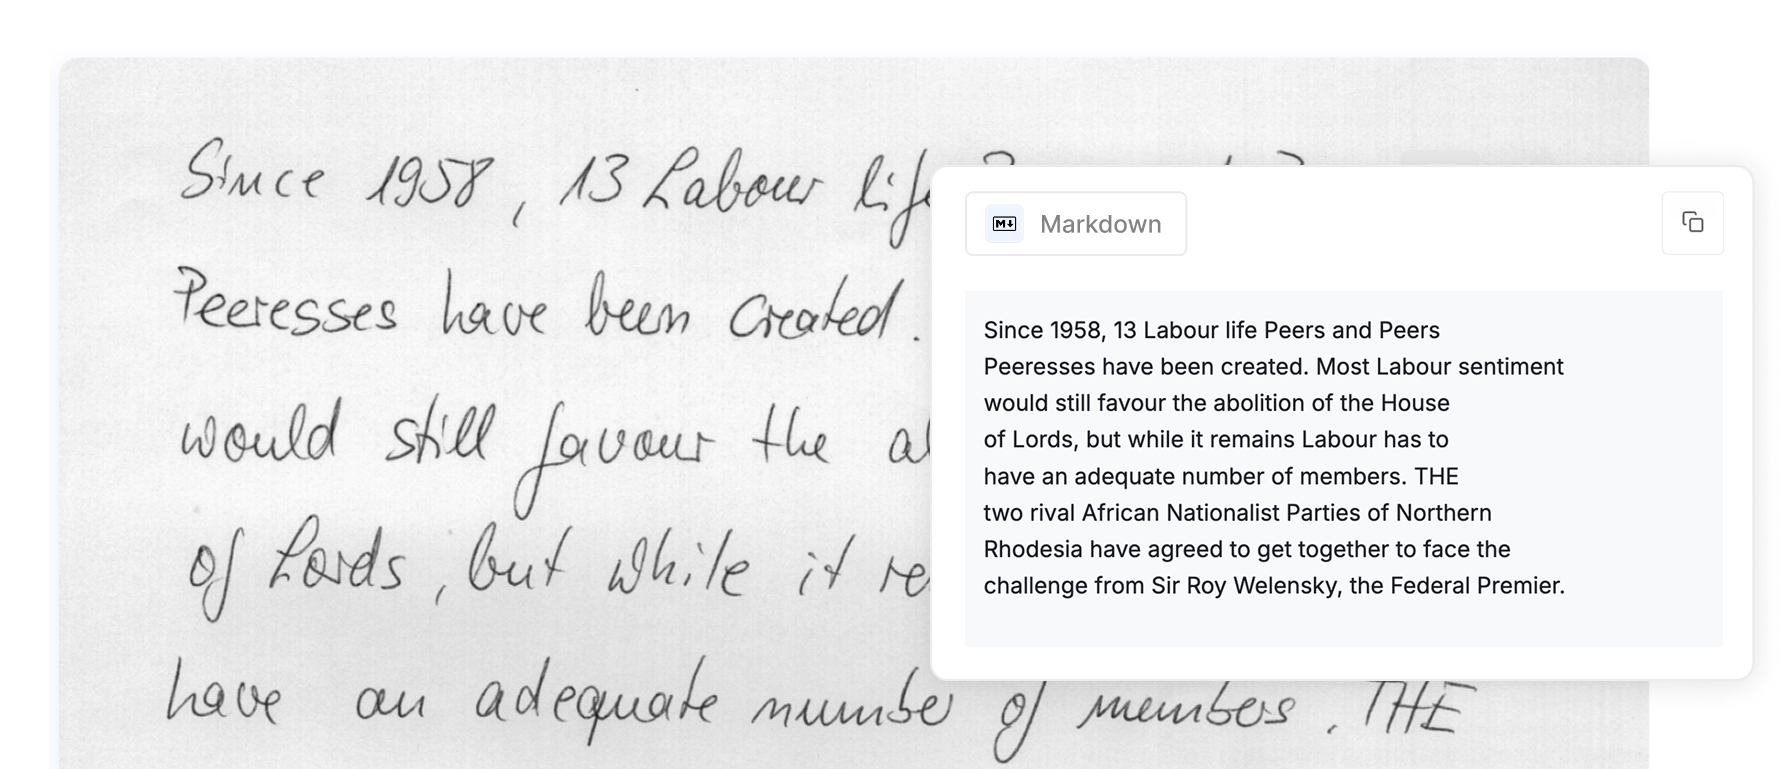 Since 1958, 13 Labour life
Peeresses have been created.
would still favour the
of Lords, but while it
have an adequate number of members. THE
Markdown
Since 1958, 13 Labour life Peers and Peers
Peeresses have been created. Most Labour sentiment
would still favour the abolition of the House
of Lords, but while it remains Labour has to
have an adequate number of members. THE
two rival African Nationalist Parties of Northern
Rhodesia have agreed to get together to face the
challenge from Sir Roy Welensky, the Federal Premier.